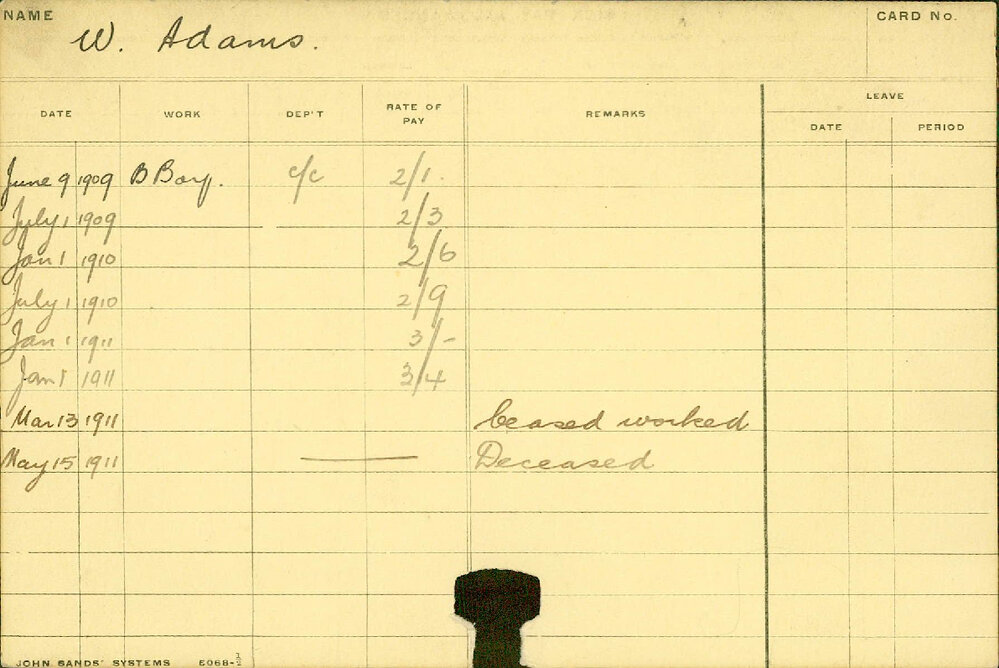 NAME W. Adams. CARD No.
DATE WORK DEP'T RATE OF PAY REMARKS LEAVE
DATE PERIOD
June 9 1909 B Boy. c/c 2/1.
July 1 1909 2/3
Jan 1 1910 2/6
July 1 1910 2/9
Jan 1 1911 3/-
Jan 1 1911 3/4
Mar 13 1911 Ceased worked
May 15 1911 — Deceased
JOHN SANDS' SYSTEMS E068-3/2